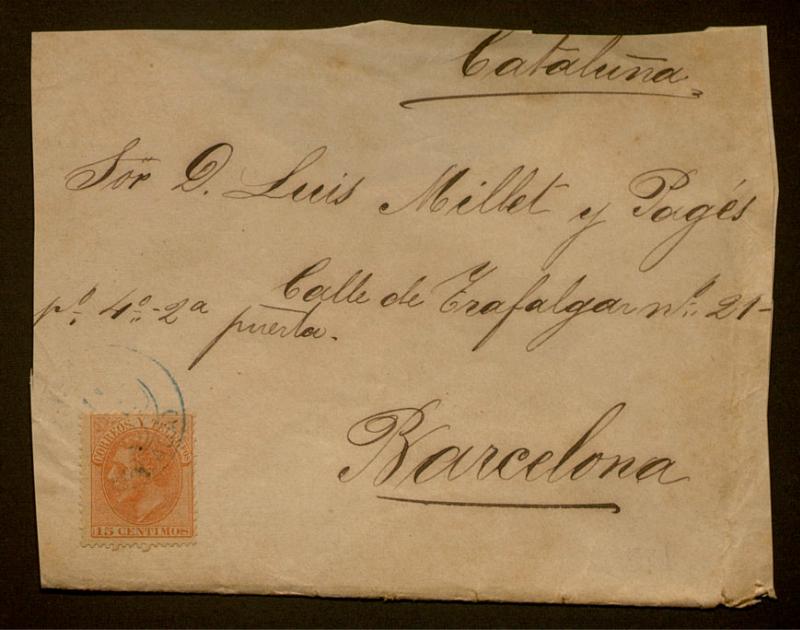 Cataluña
Sör D. Luis Millet y Pagés
Calle de Trafalgar nº. 21-
pº. 4º.-2ª puerta.
Barcelona
CORREOS Y TELEGFOS
15 CENTIMOS